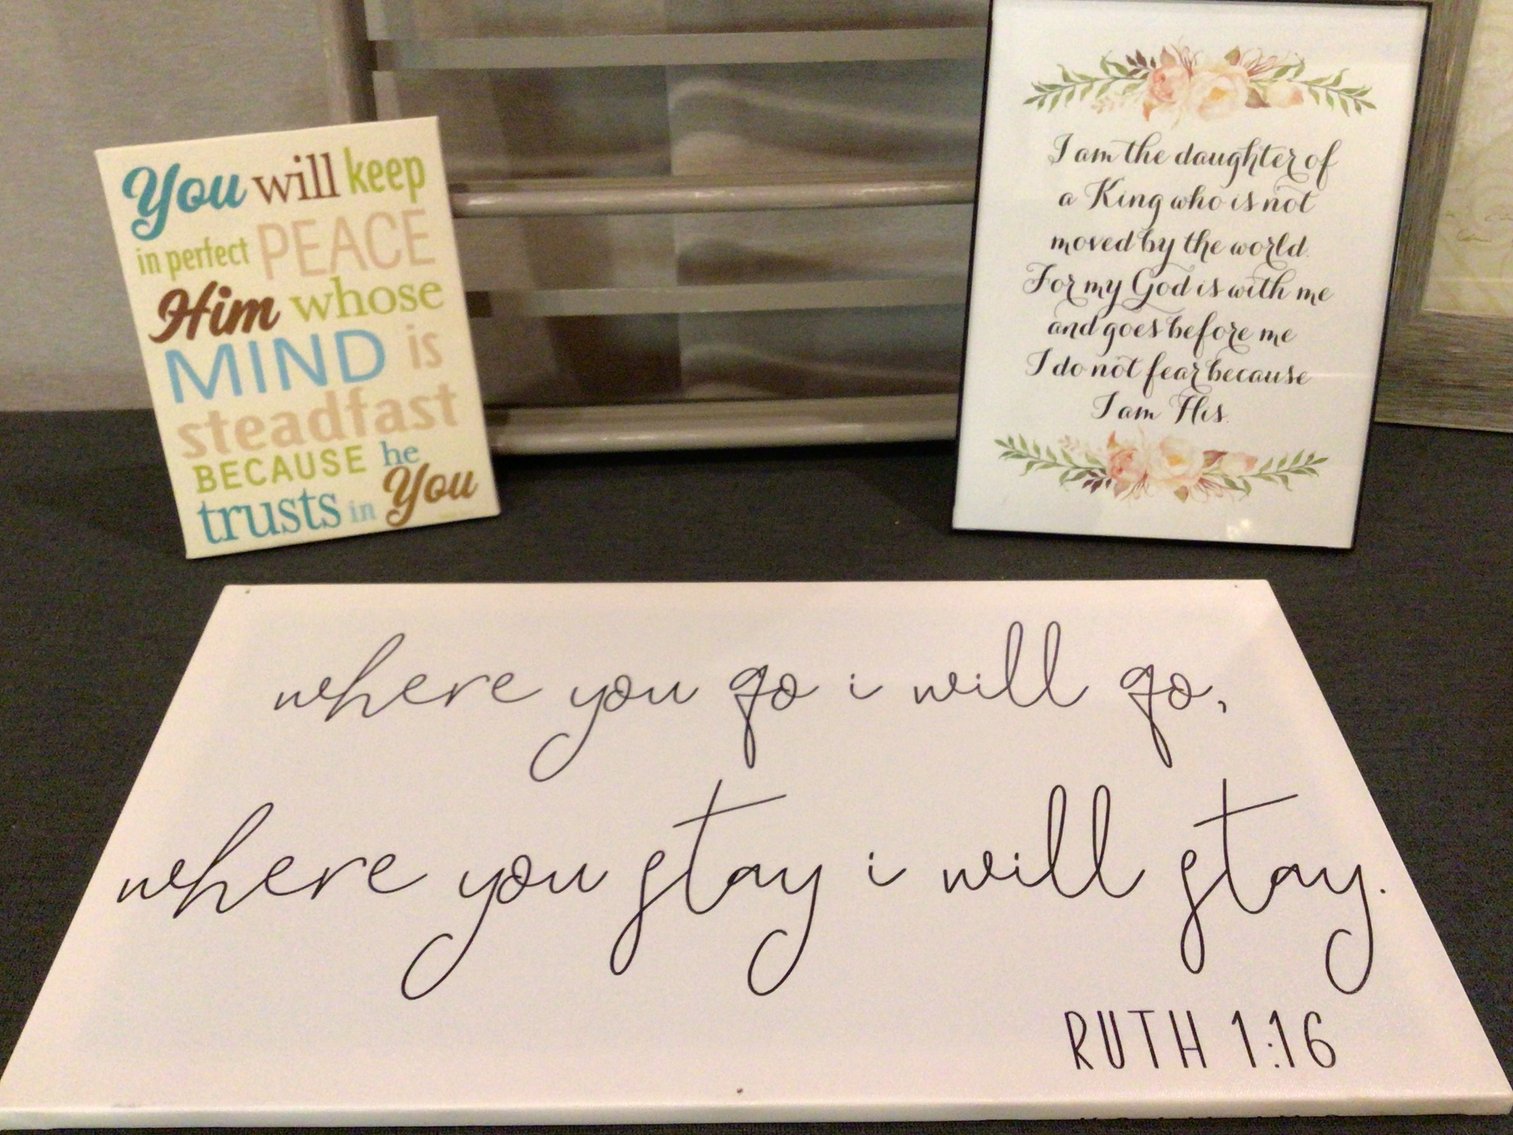 You will keep
in perfect PEACE
Him whose
MIND is
steadfast
BECAUSE he
trusts in You
I am the daughter of
a King who is not
moved by the world.
For my God is with me
and goes before me
I do not fear because
I am His.
where you go i will go,
where you stay i will stay.
RUTH 1:16